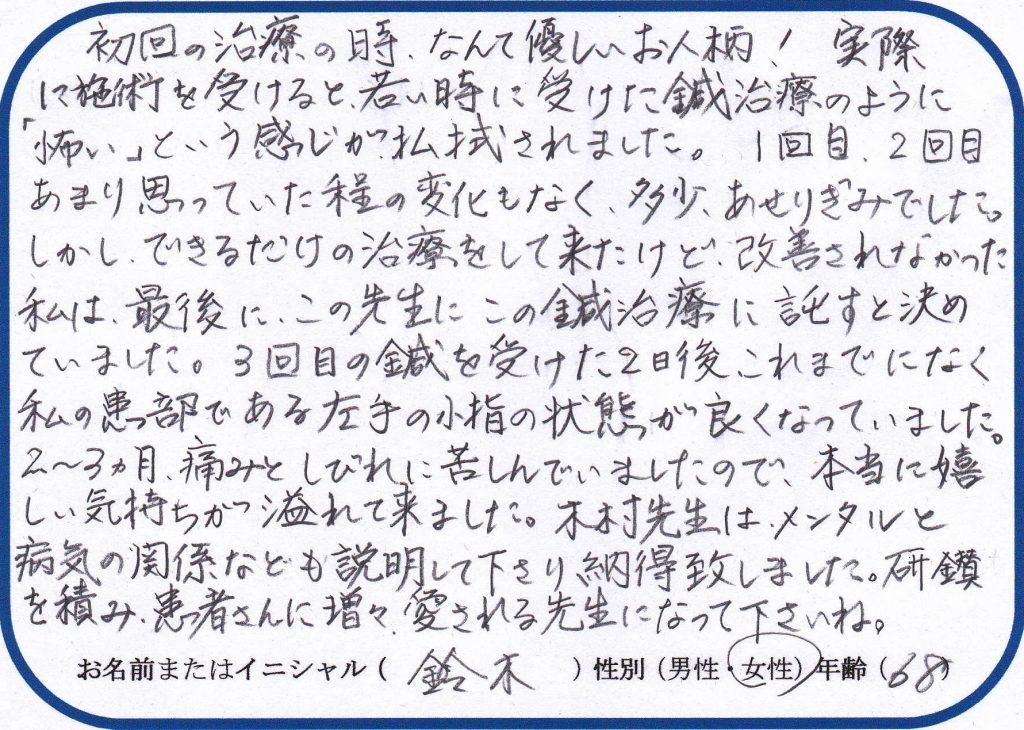 初回の治療の時、なんて優しいお人柄！ 実際
に施術を受けると、若い時に受けた鍼治療のように
「怖い」という感じが払拭されました。 1回目、2回目
あまり思っていた程の変化もなく、多少、あせりぎみでした。
しかし、できるだけの治療をして来たけど、改善されなかった
私は、最後に、この先生にこの鍼治療に託すと決め
ていました。3回目の鍼を受けた2日後、これまでになく
私の患部である左手の小指の状態が良くなっていました。
2〜3ヵ月、痛みとしびれに苦しんでいましたので、本当に嬉
しい気持ちが溢れて来ました。木村先生は、メンタルと
病気の関係なども説明して下さり、納得致しました。研鑚
を積み、患者さんに増々、愛される先生になって下さいね。
お名前またはイニシャル（ 鈴木 ）性別（男性・女性）年齢（68）